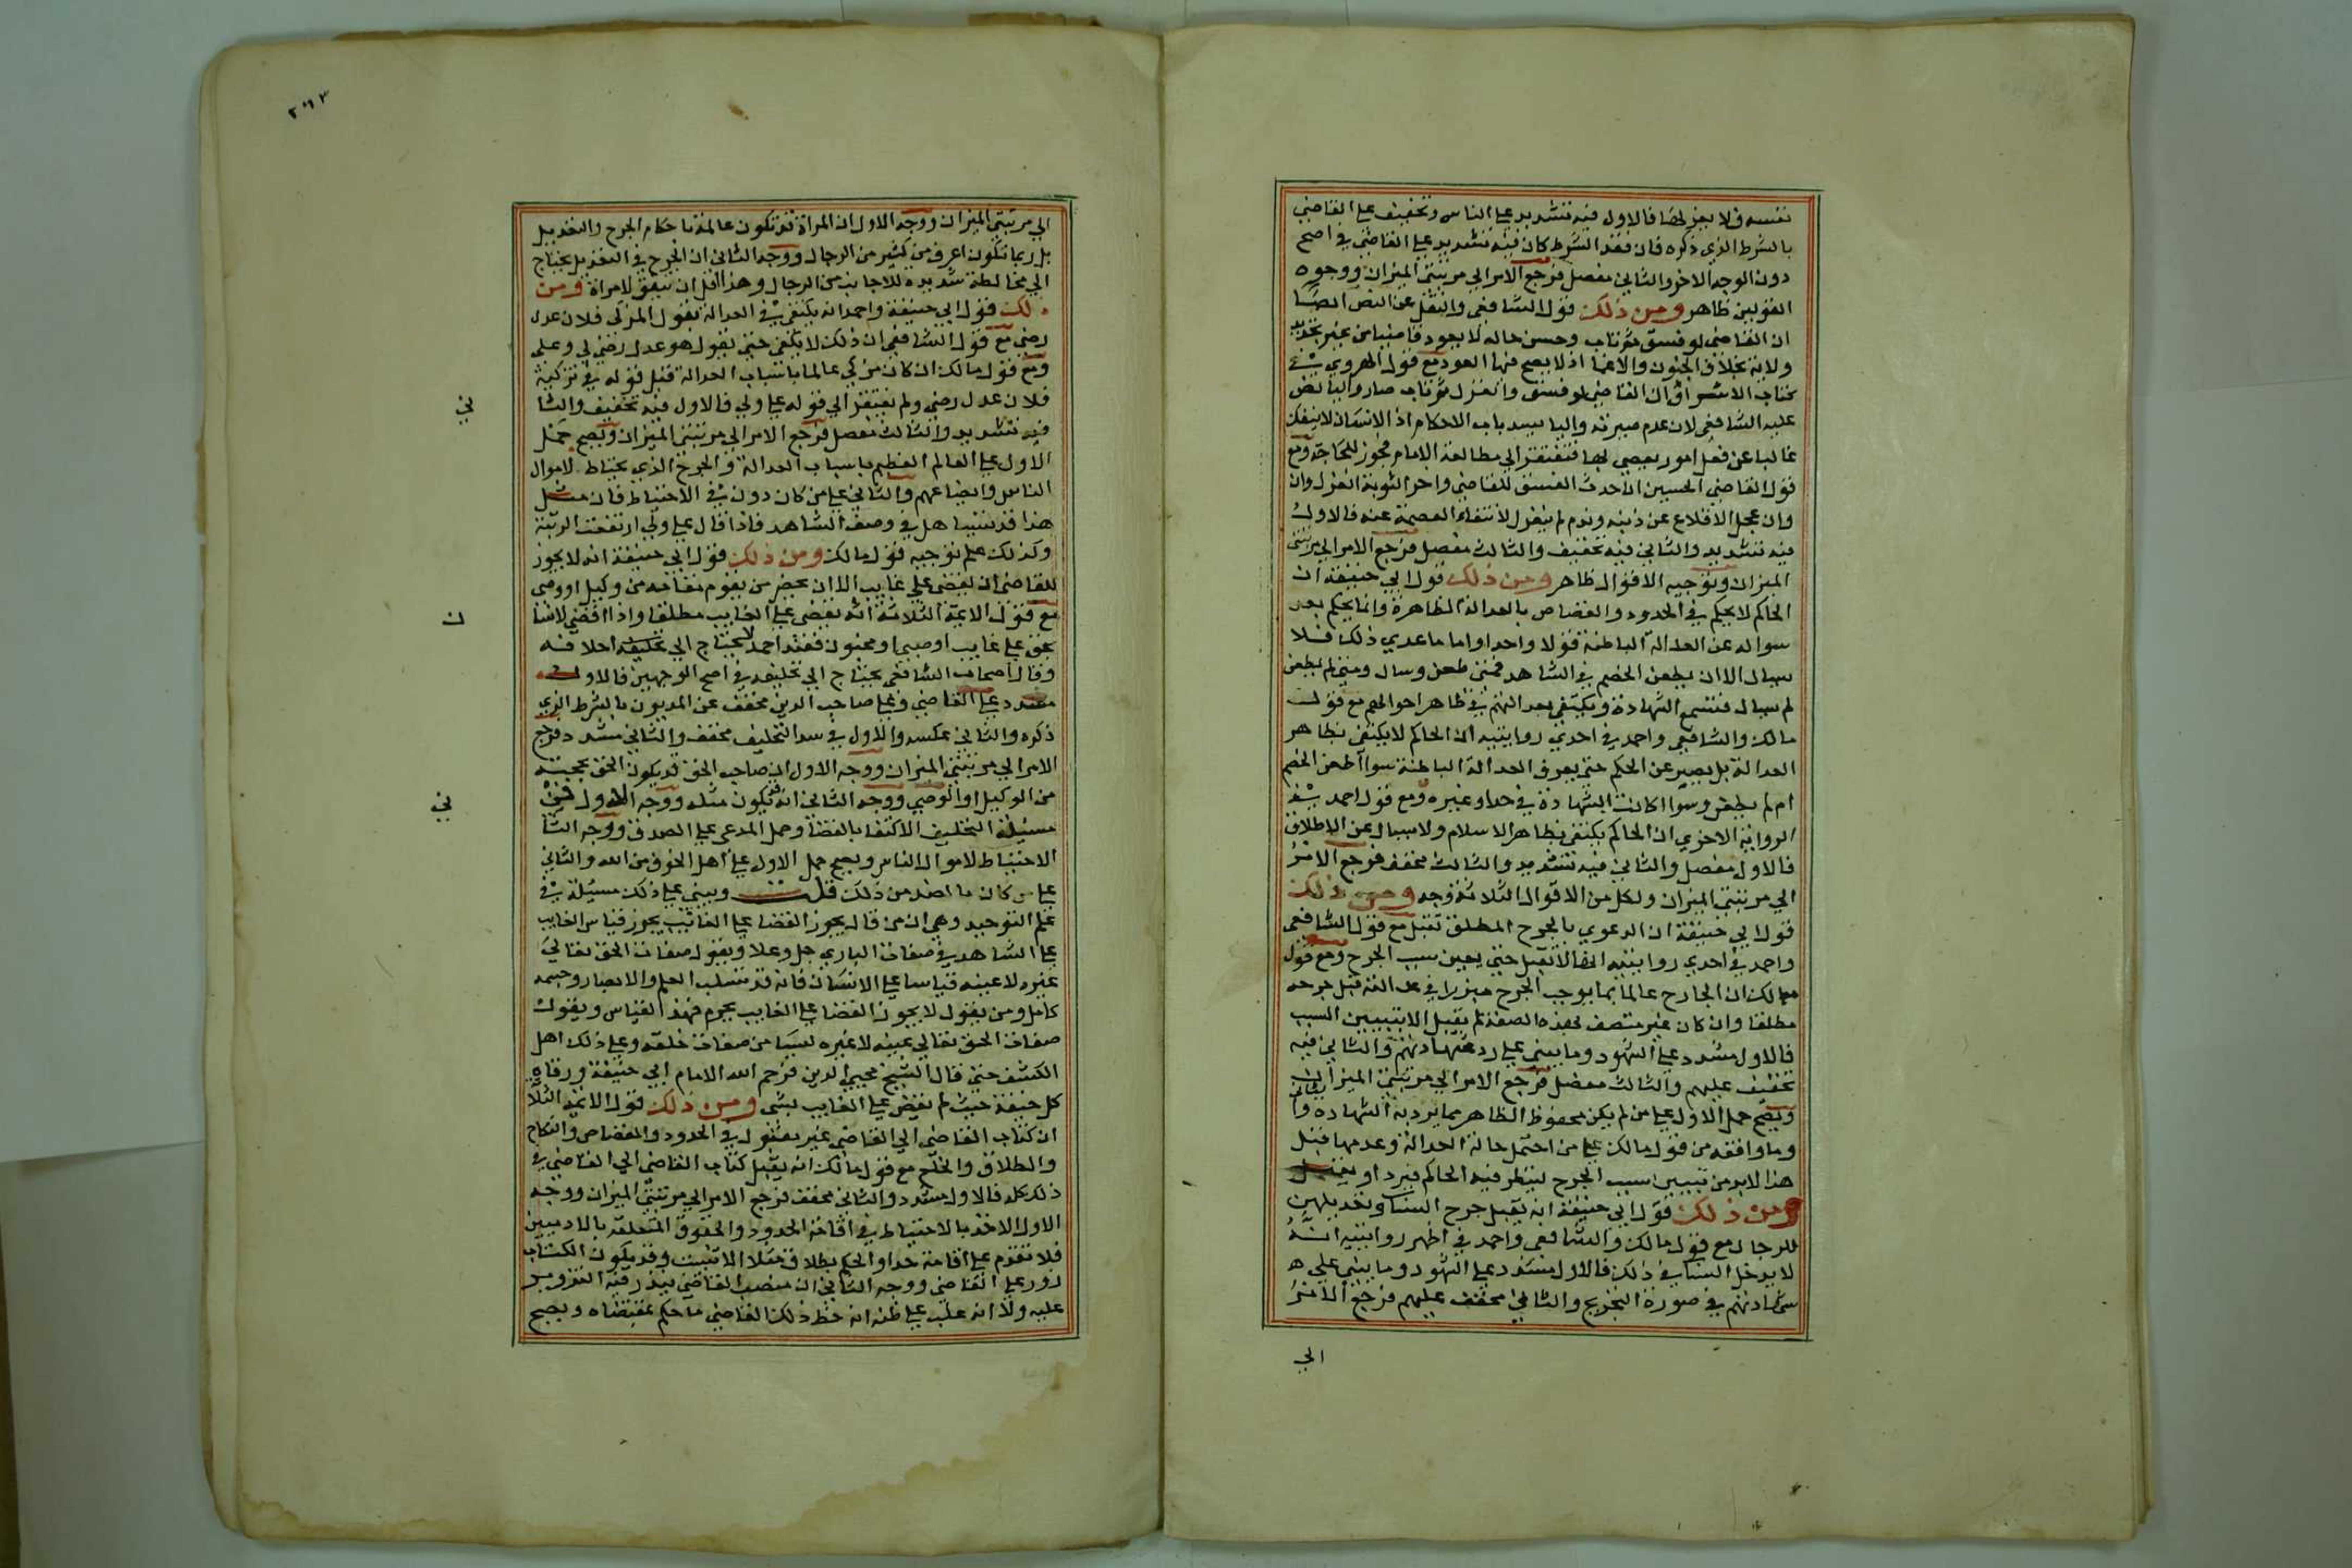 نفسه فلا يعزلها فالاول فيه تشديد علي الناس وتخفيف علي القاضي
بالشرط الذي ذكره فان فقد الشرط كان فيه تشديد علي القاضي في اصح
دون الوجه الاخر والثاني مفصل فرجع الامر الي مرتبتي الميزان ووجوه
القولين ظاهر ومن ذلك قول الشافعي والنقل عن النص ايضا
ان القاضي لو فسق ثم تاب وحسن حاله لا يعود قاضيا من غير تجديد
ولاية بخلاف الجنون والاغما اذ لا يصح فيها العود مع قول الهروي في
كتاب الاشراف ان القاضي لو فسق وانعزل ثم تاب صار واليا نص
عليه الشافعي لان عدم صيرته واليا يسد باب الاحكام اذ الانسان لا ينفك
غالبا عن فعل امور يعصي بها فتفتقر الي مطالعة الامام فجوز للحاجة ومع
قول القاضي الحسين ان احدث الفسق للقاضي واخر التوبة انعزل وان
وان عجل الاقلاع عن ذنبه وندم لم ينعزل لانتفاء العصمة عنه فالاول
فيه تشديد والثاني فيه تخفيف والثالث مفصل فرجع الامر الي مرتبتي
الميزان وتوجيه الاقوال ظاهر ومن ذلك قول ابي حنيفة ان
الحاكم لا يحكم في الحدود والقصاص بالعدالة الظاهرة وانما يحكم بعد
سواله عن العدالة الباطنة قولا واحدا واما ما عدي ذلك فلا
يسال الا ان يطعن الخصم في الشاهد فمتي طعن وسال ومتي لم يطعن
لم يسال فتسمع الشهادة ويكتفي بعدالتهم في ظاهر احوالهم مع قول
مالك والشافعي واحمد في احدي روايتيه ان الحاكم لا يكتفي بظاهر
العدالة بل يصير عن الحكم حتي يعرف العدالة الباطنة سوا اطعن الخصم
ام لم يطعن وسوا اكانت الشهادة في حد او غيره ومع قول احمد في
الرواية الاخري ان الحاكم يكتفي بظاهر الاسلام ولا يسال عن الاطلاق
فالاول مفصل والثاني فيه تشديد والثالث مخفف فرجع الامر
الي مرتبتي الميزان ولكل من الاقوال الثلاثة وجه ومن ذلك
قول ابي حنيفة ان الدعوي بالجرح المطلق تقبل مع قول الشافعي
واحمد في احدي روايتيه انها لا تقبل حتي يعين سبب الجرح ومع قول
مالك ان الجارح عالما بما يوجب الجرح مبرزا في عدالته قبل جرحه
مطلقا وان كان غير متصف بهذه الصفة لم يقبل الا بتبيين السبب
فالاول مشدد علي الشهود وما يبني علي رد شهادتهم والثاني فيه
تخفيف عليهم والثالث مفصل فرجع الامر الي مرتبتي الميزان
ويصح حمل الاول علي من لم يكن محفوظ الظاهر مما يرد به الشهادة والثاني
وما وافقه من قول مالك علي من احتمل حالة العدالة وعدمها فمثل
هذا لا بد من تبيين سبب الجرح لينظر فيه الحاكم فيرد او يقبل
ومن ذلك قول ابي حنيفة انه يقبل جرح النسا وتعديلهن
للرجال مع قول مالك والشافعي واحمد في اظهر روايتيه انه
لا يدخل النسا في ذلك فالاول مشدد علي الشهود وما يبني علي
شهادتهم في صورة التجريح والثاني مخفف عليهم فرجع الامر
الي
٢٩٣
الي مرتبتي الميزان ووجه الاول ان المراة قد تكون عالمة باحكام الجرح والتعديل
بل ربما تكون اعرف من كثير من الرجال ووجه الثاني ان الجرح في التعديل يحتاج
الي مخالطة شديدة للاجانب من الرجال وهذا اقل ان يتفق لامراة ومن
ذلك قول ابي حنيفة واحمد انه يكتفي في العدالة بقول المزكي فلان عدل
رضي مع قول الشافعي ان ذلك لا يكفي حتي يقول هو عدل رضي لي وعلي
ومع قول مالك ان كان مزكي عالما باسباب العدالة قبل قوله في تزكية
فلان عدل رضي ولم يفتقر الي قوله علي ولي فالاول فيه تخفيف والثا
ني
فيه تشديد والثالث مفصل فرجع الامر الي مرتبتي الميزان ويصح حمل
الاول علي العالم العظيم باسباب العدالة والجرح الذي يحتاط لاموال
الناس وابضاعهم والثاني علي من كان دونه في الاحتياط فان مثل
هذا قد يتساهل في وصف الشاهد فاذا قال علي ولي ارتفعت الريبة
وكذلك علم توجيه قول مالك ومن ذلك قول ابي حنيفة انه لا يجوز
للقاضي ان يقضي علي غايب الا ان يحضر من يقوم مقامه من وكيل او وصي
مع قول الايمة الثلاثة انه يقضي علي الغايب مطلقا واذا اقضي لانسا
ن
بحق علي غايب او صبي او مجنون فعند احمد لا يحتاج الي تحليفه
وقال اصحاب الشافعي يحتاج الي تحليفه في اصح الوجهين فالاول
مشدد علي القاضي وعلي صاحب الدين مخفف عن المديون بالشرط الذي
ذكره والثاني عكسه والاول في سد التحليف مخفف والثاني مشدد فرجع
الامر الي مرتبتي الميزان ووجه الاول ان صاحب الحق قد يكون الحق بحجته
من الوكيل او الوصي ووجه الثاني انه قد يكون مثله ووجه الاول في
مسيلة التحليف الاكتفا بالقضا وحمل المدعي علي الصدق ووجه الثا
ني
الاحتياط لاموال الناس ويصح حمل الاول علي اهل الخوف من الله والثاني
علي من كان بالضد من ذلك قلت ويبني علي ذلك مسئلة في
علم التوحيد وهي ان من قال يجوز القضا علي الغائب يجوز قياس الغايب
علي الشاهد في صفات الباري جل وعلا ويقول صفات الحق تعالي
غيره لا عينه قياسا علي الانسان فانه قد تسلب العلم والابصار وجسمه
كامل ومن يقول لا يجوز القضا علي الغايب يحرم هذا القياس ويقول
صفات الحق تعالي عينه لا غيره ليسا من صفات خلقه وعلي ذلك اهل
الكشف حتي قال الشيخ محيي الدين فرحم الله الامام ابي حنيفة ورقاه
كل حنيفة حيث لم يقض علي الغايب بشي ومن ذلك قول الايمة الثلا
ان كتاب القاضي الي القاضي غير مقبول في الحدود والقصاص والنكاح
والطلاق والخلع مع قول مالك انه يقبل كتاب القاضي الي القاضي في
ذلك كله فالاول مشدد والثاني مخفف فرجع الامر الي مرتبتي الميزان ووجه
الاول الاخذ بالاحتياط في اقامة الحدود والحقوق المتعلقة بالادميين
فلا نقدم علي اقامة حد او الحكم بطلاق مثلا الا بتثبت وقد يكون الكتاب
زور علي القاضي ووجه الثاني ان منصب القاضي يبذر فيه التزوير
عليه ولا انه غلب علي ظنه انه خط ذلك القاضي ما حكم بمقتضاه ويصح